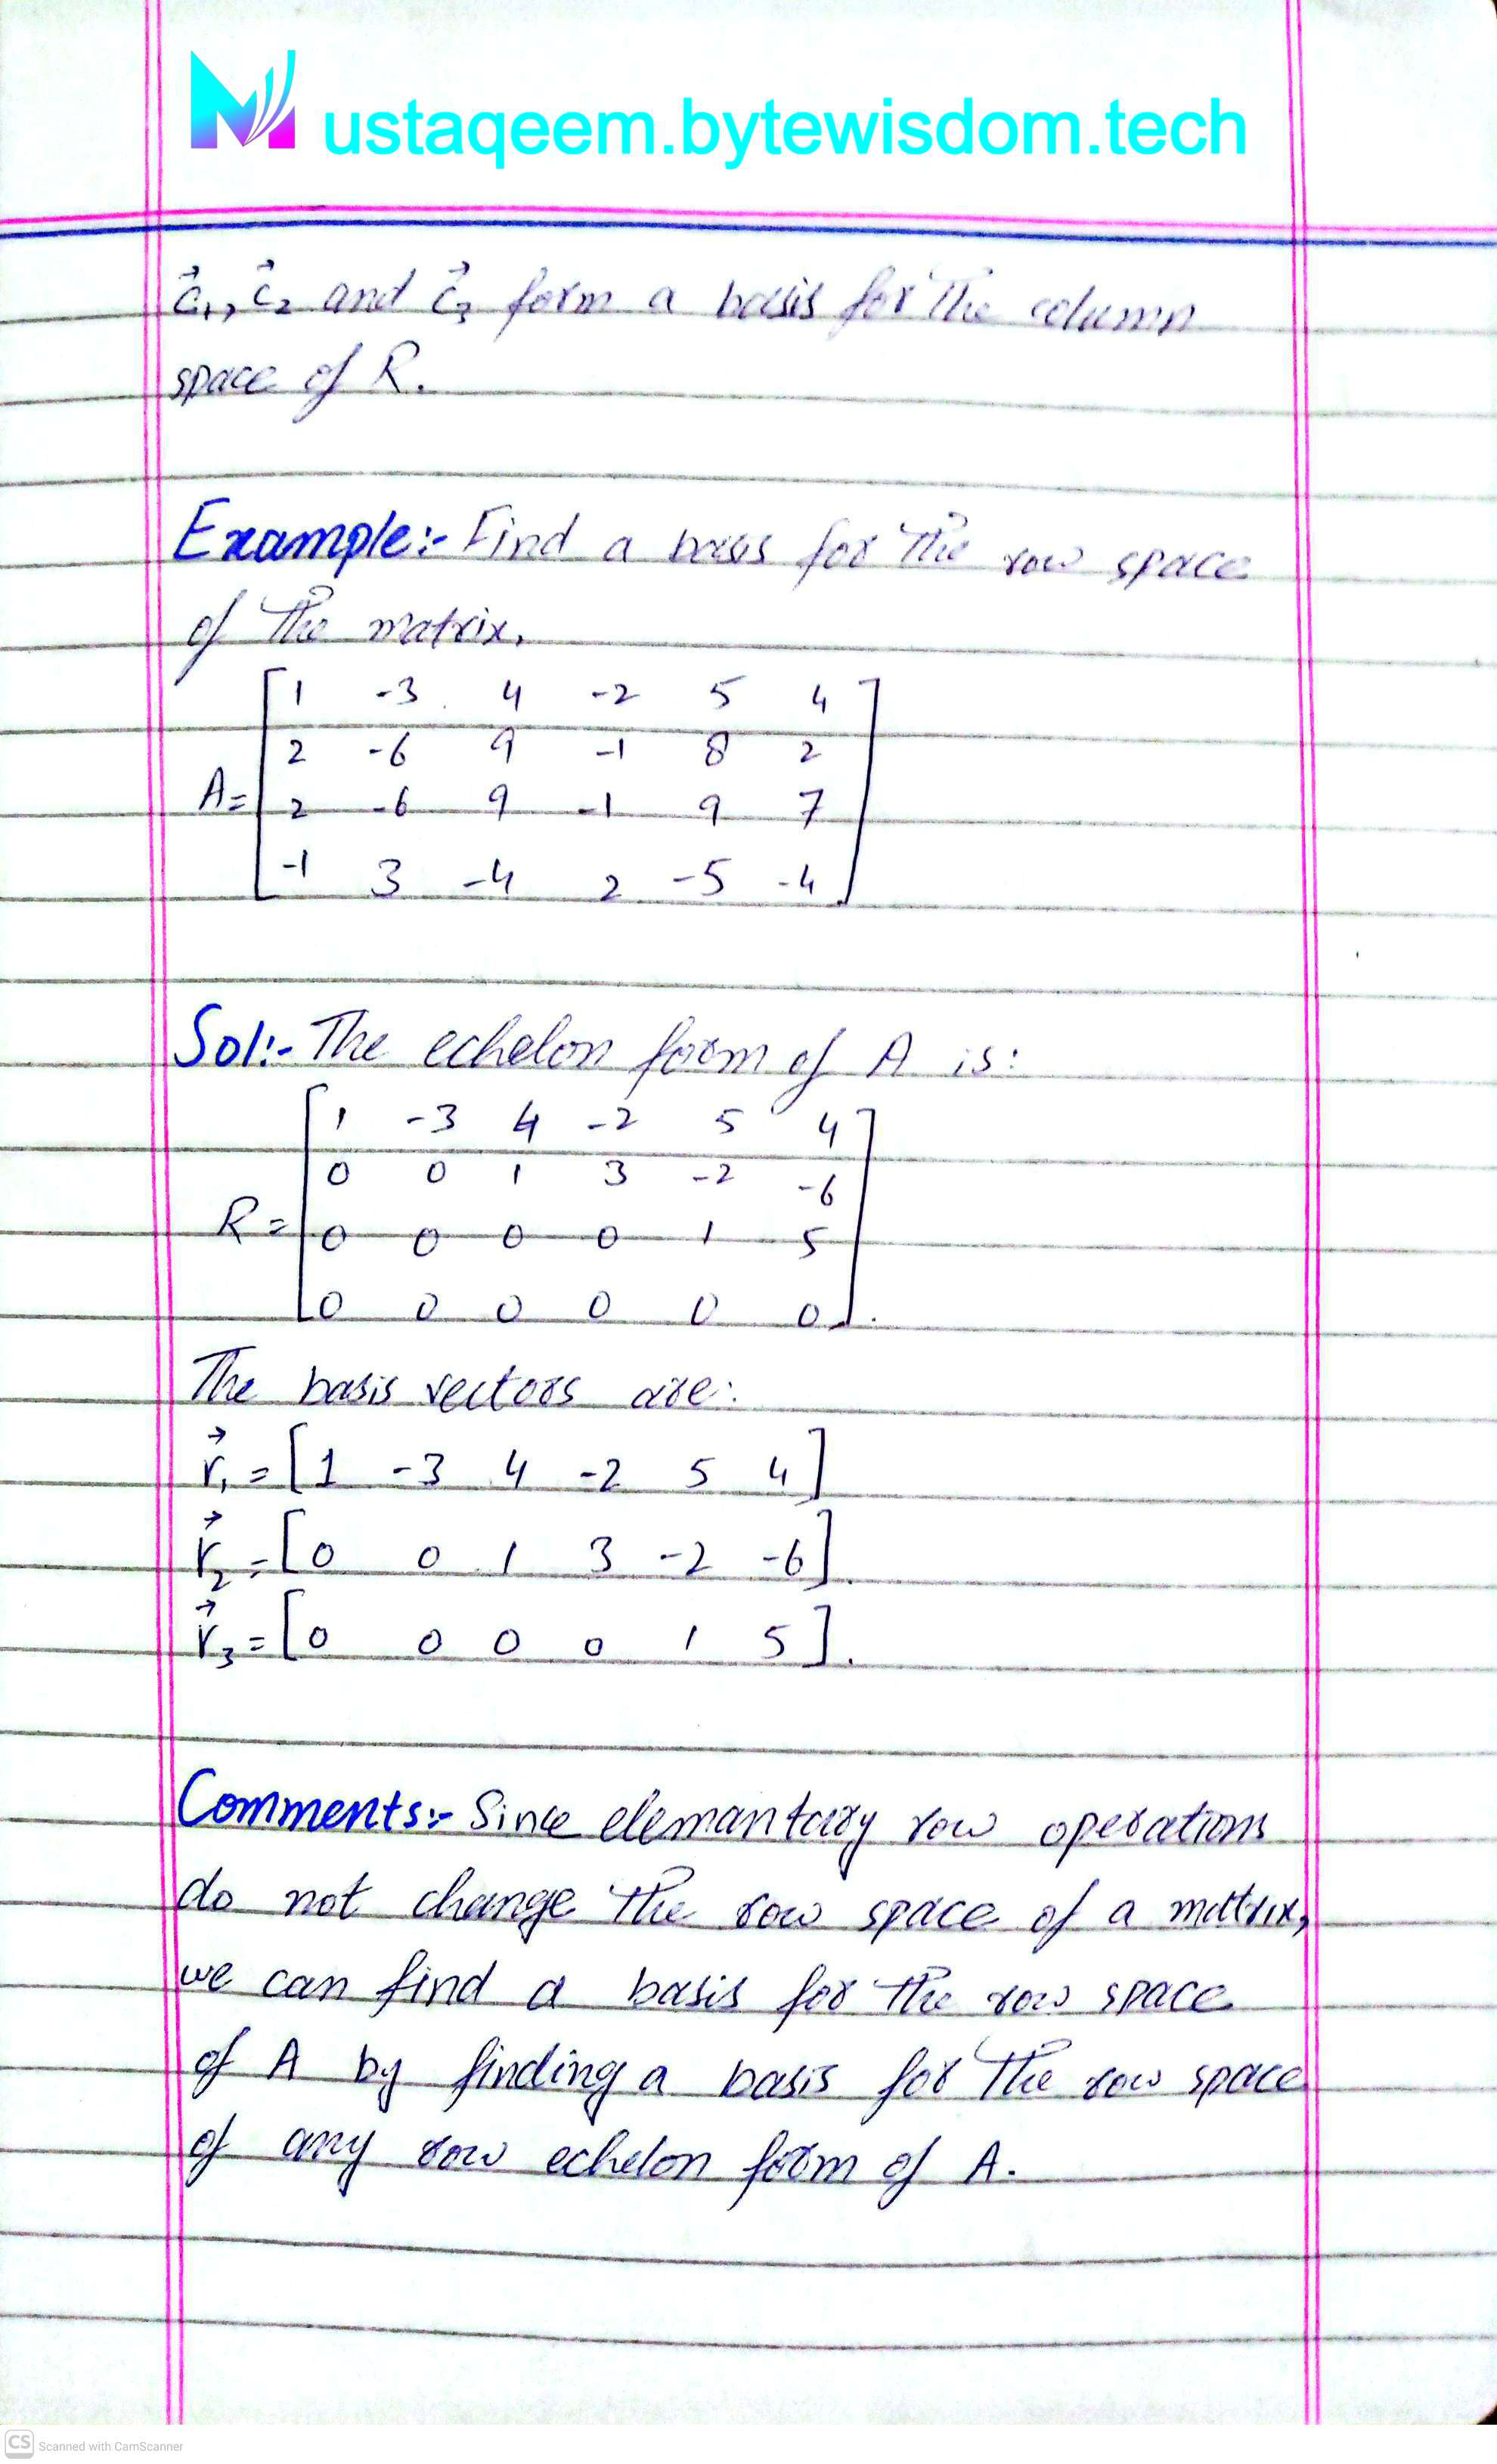 Mustaqeem.bytewisdom.tech
c⃗₁, c⃗₂ and c⃗₃ form a basis for the column
space of R.
Example:- Find a basis for the row space
of the matrix,
1 -3 4 -2 5 4
2 -6 9 -1 8 2
A= 2 -6 9 -1 9 7
-1 3 -4 2 -5 -4
Sol:- The echelon form of A is:
1 -3 4 -2 5 4
0 0 1 3 -2 -6
R= 0 0 0 0 1 5
0 0 0 0 0 0.
The basis vectors are:
r⃗₁ = [1 -3 4 -2 5 4]
r⃗₂ = [0 0 1 3 -2 -6].
r⃗₃ = [0 0 0 0 1 5].
Comments:- Since elemantary row operations
do not change the row space of a mattrix,
we can find a basis for the row space
of A by finding a basis for the row space
of any row echelon form of A.
CS Scanned with CamScanner